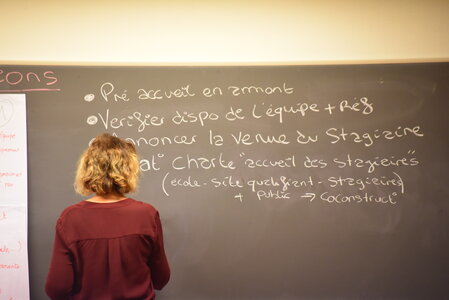 ons
• Pré accueil en amont
• Vérifier dispo de l'équipe + Réf
Annoncer la venue du Stagiaire
at° Charte "accueil des stagiaires"
(école - site qualifiant - Stagiaires)
+ Public → Coconstruct°